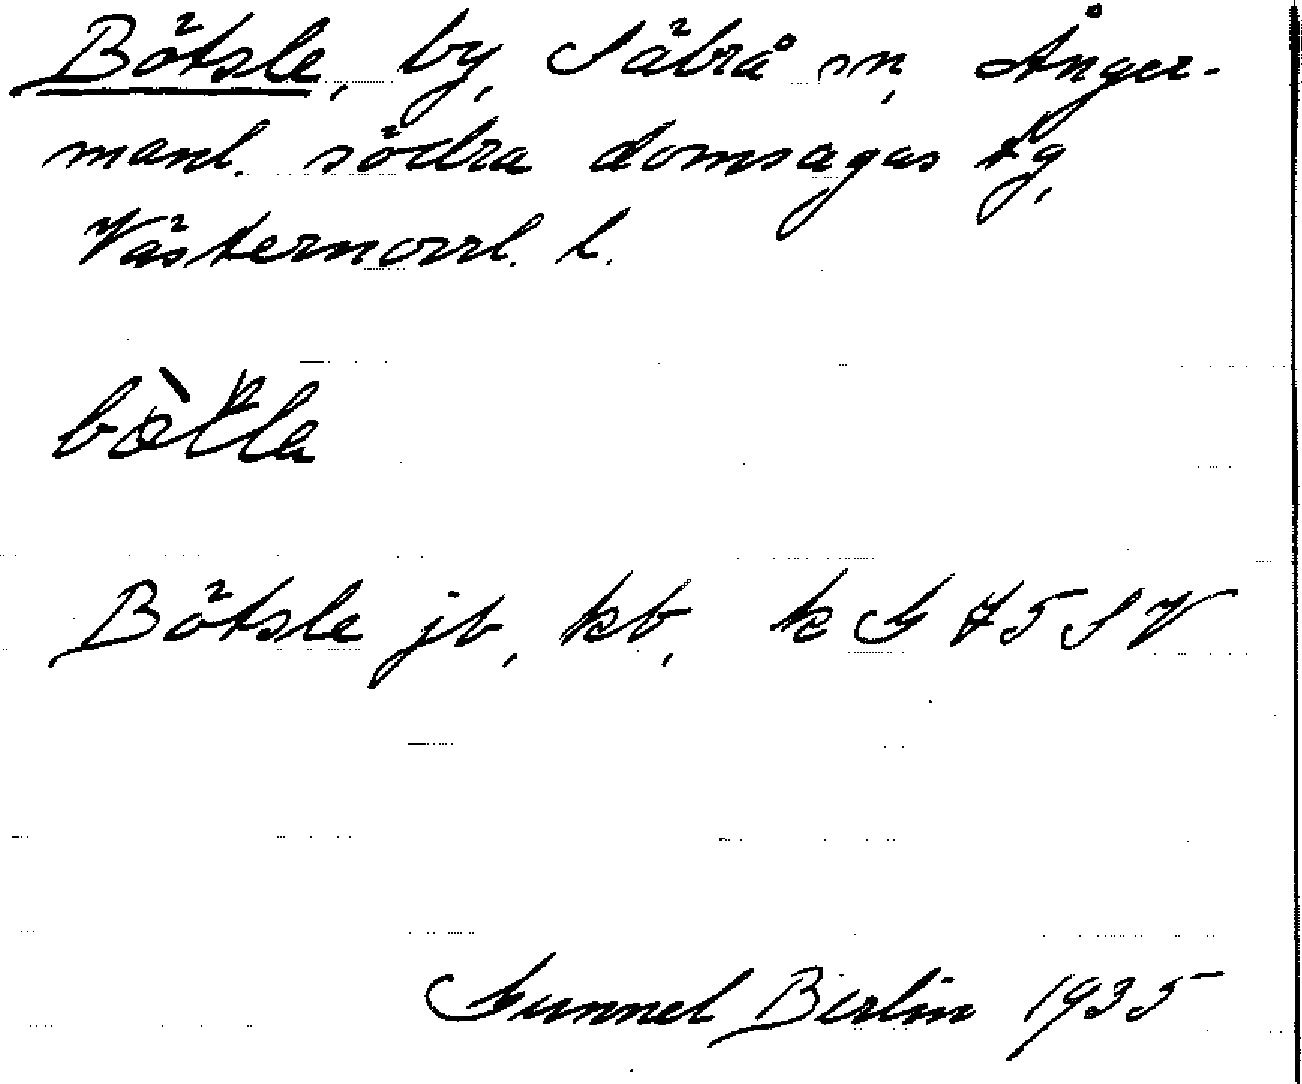 Bötsle, by, Säbrå sn, Ånger-
manl. södra domsagas tg,
Västernorrl. l.
Bötsle jb, kb, k G 75 SV
Gunnel Berlin 1935